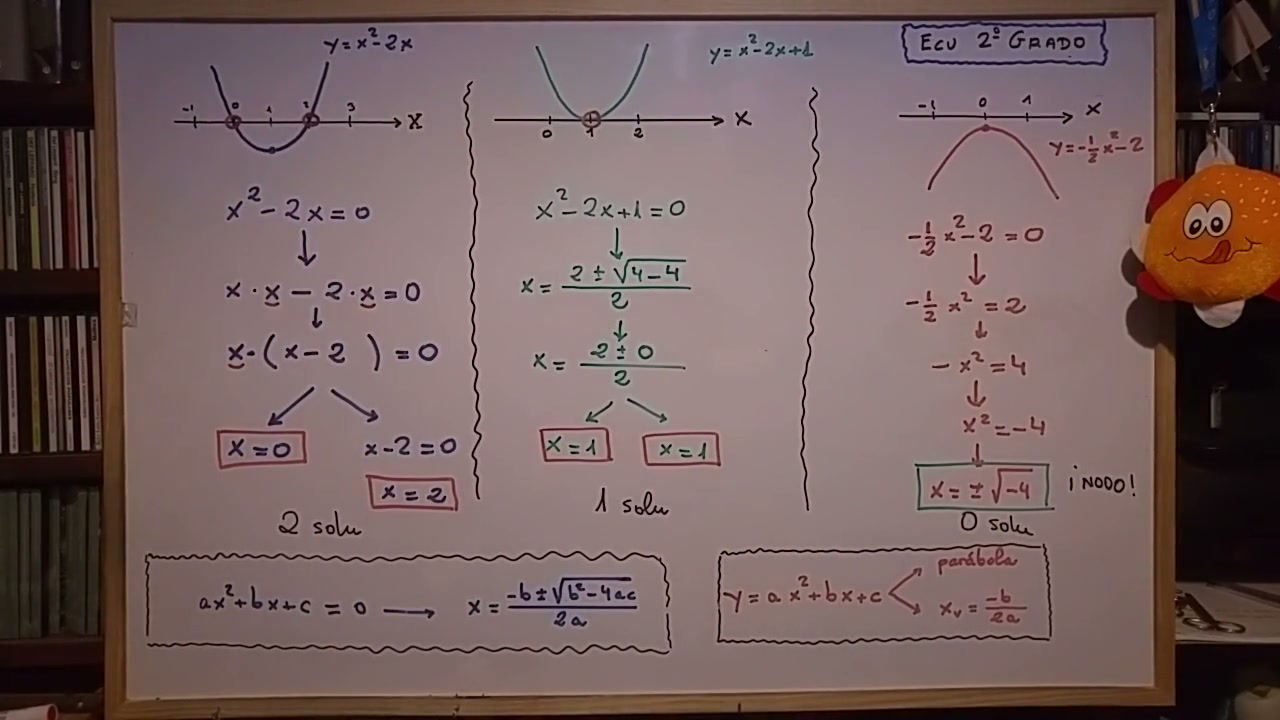 y=x²-2x
-1 0 1 2 3 X
x²-2x=0
x·x-2·x=0
x·(x-2)=0
x=0 x-2=0
x=2
2 solu
y=x²-2x+1
0 1 2 X
x²-2x+1=0
x=(2±√(4-4))/2
x=(2±0)/2
x=1 x=1
1 solu
ECU 2º GRADO
-1 0 1 X
y=-1/2x²-2
-1/2x²-2=0
-1/2x²=2
-x²=4
x²=-4
x=±√-4 ¡NOOO!
0 solu
ax²+bx+c=0 → x=(-b±√(b²-4ac))/2a
y=ax²+bx+c
parábola
xᵥ=-b/2a